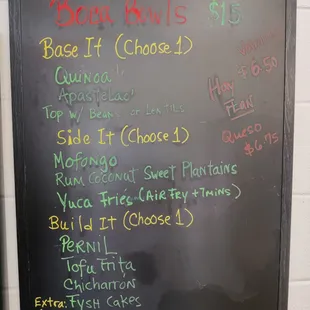 Bowls $15
Base It (Choose 1)
Quinoa
Top w/ Beans or Lentils
Side It (Choose 1)
Mofongo
Rum Coconut Sweet Plantains
Yuca Fries (Air Fry + 7mins)
Build It (Choose 1)
Pernil
Tofu Frita
Chicharron
Extra: Fysh Cakes
$6.50
Flan
Queso
$6.75